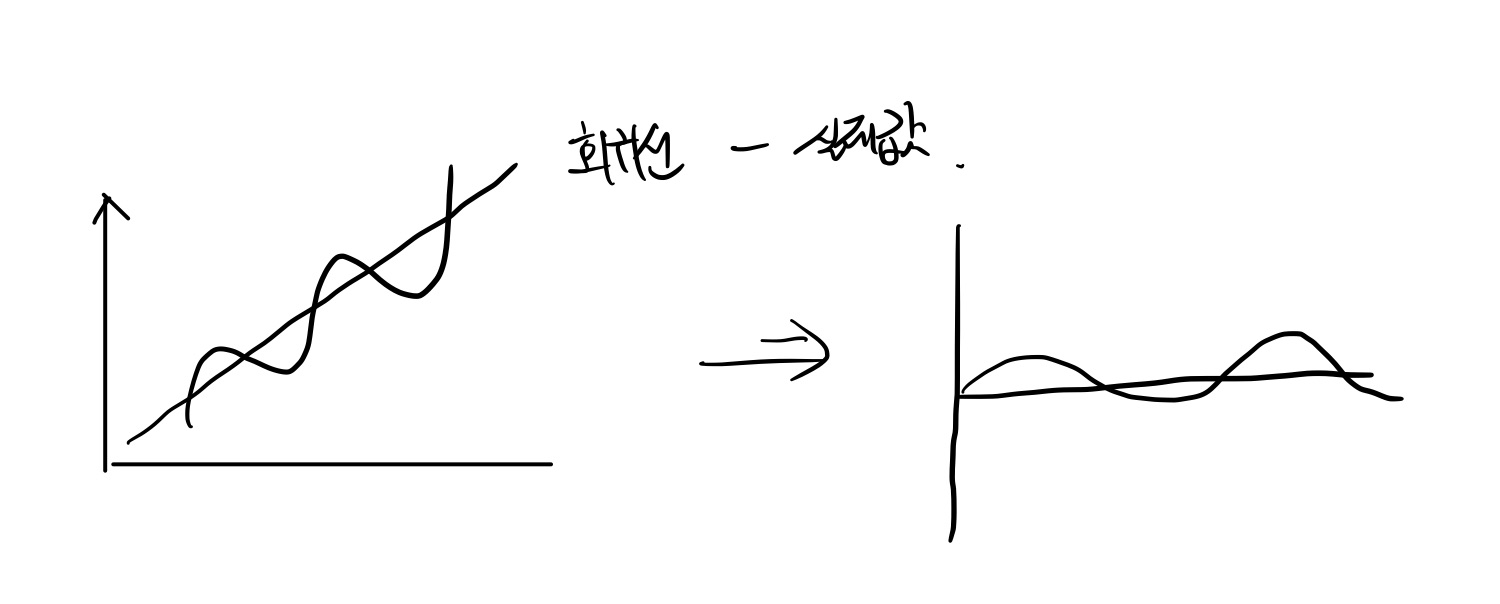 회귀선 - 실제값.